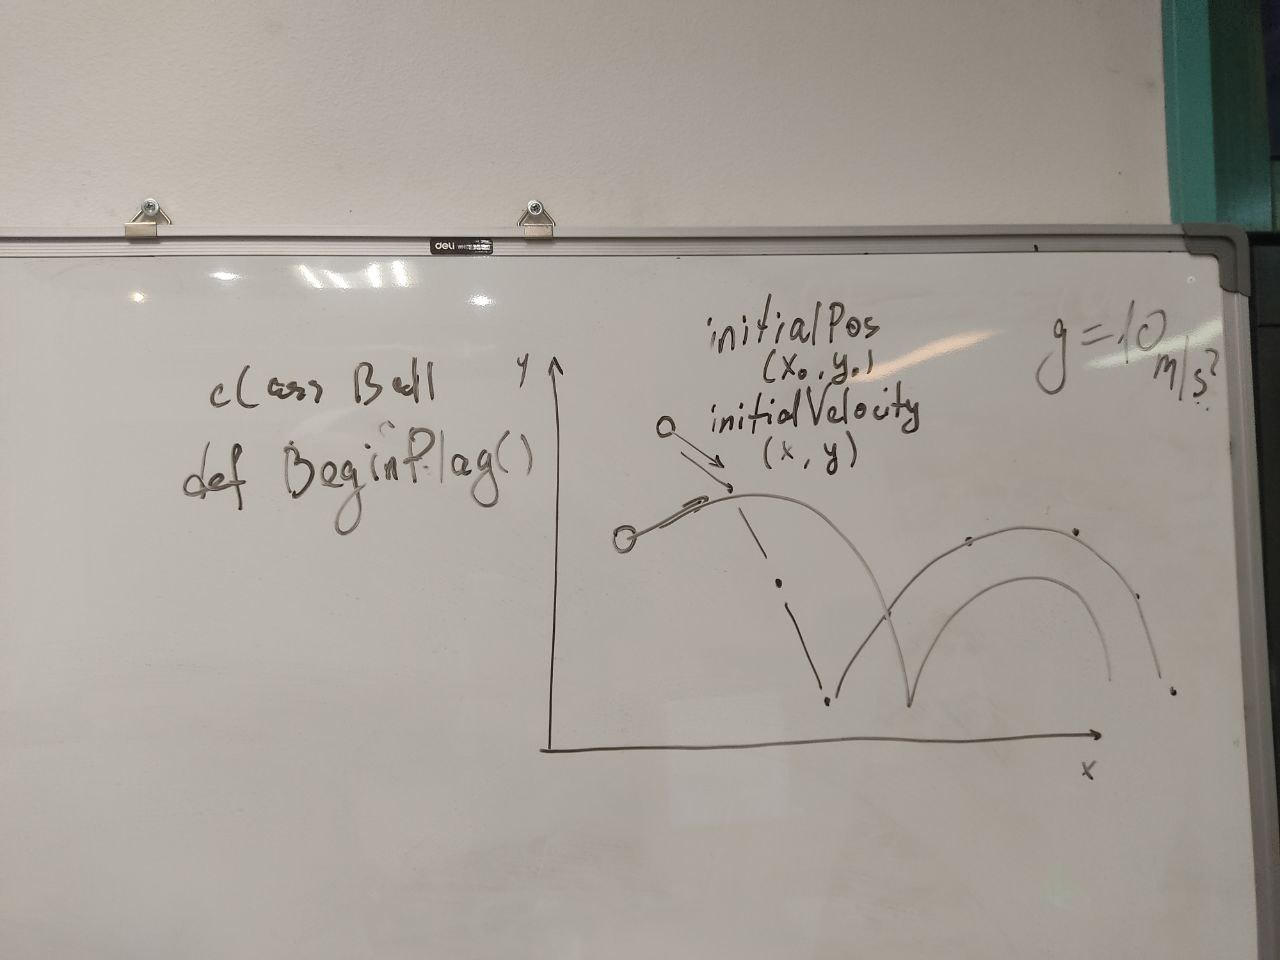 deli
class Ball
def BeginPlag()
initialPos
(x₀, y₀)
initialVelocity
(x, y)
g = 10 m/s²
y
x